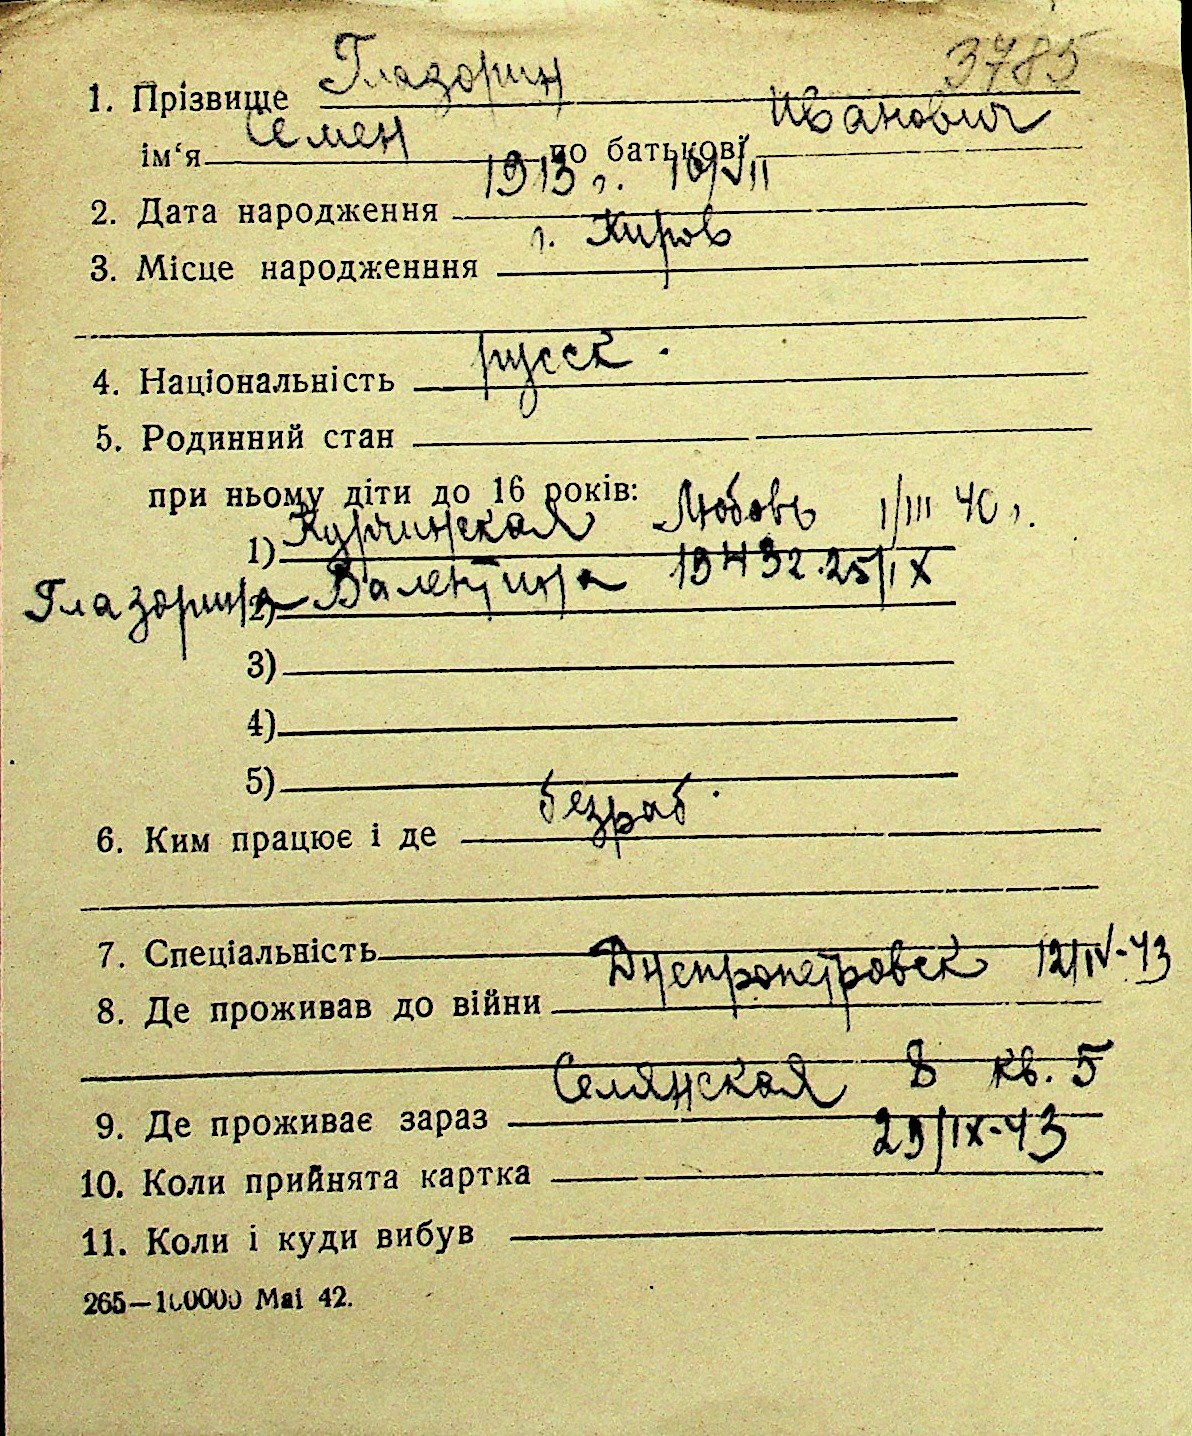 3785
1. Прізвище Глазорин
ім‘я Семен по батькові Иванович
2. Дата народження 1913 г. 16/VII
3. Місце народженння г. Киров
4. Національність русск.
5. Родинний стан
при ньому діти до 16 років:
1) Курчинская Любовь 1/III 40 г.
2) Глазорина Валентина 25/IX
3)
4)
5)
6. Ким працює і де безраб.
7. Спеціальність
8. Де проживав до війни Днепропетровск 12/IV-43
9. Де проживає зараз Селянская 8 кв. 5
10. Коли прийнята картка 29/IX-43
11. Коли і куди вибув
265—100000 Mai 42.